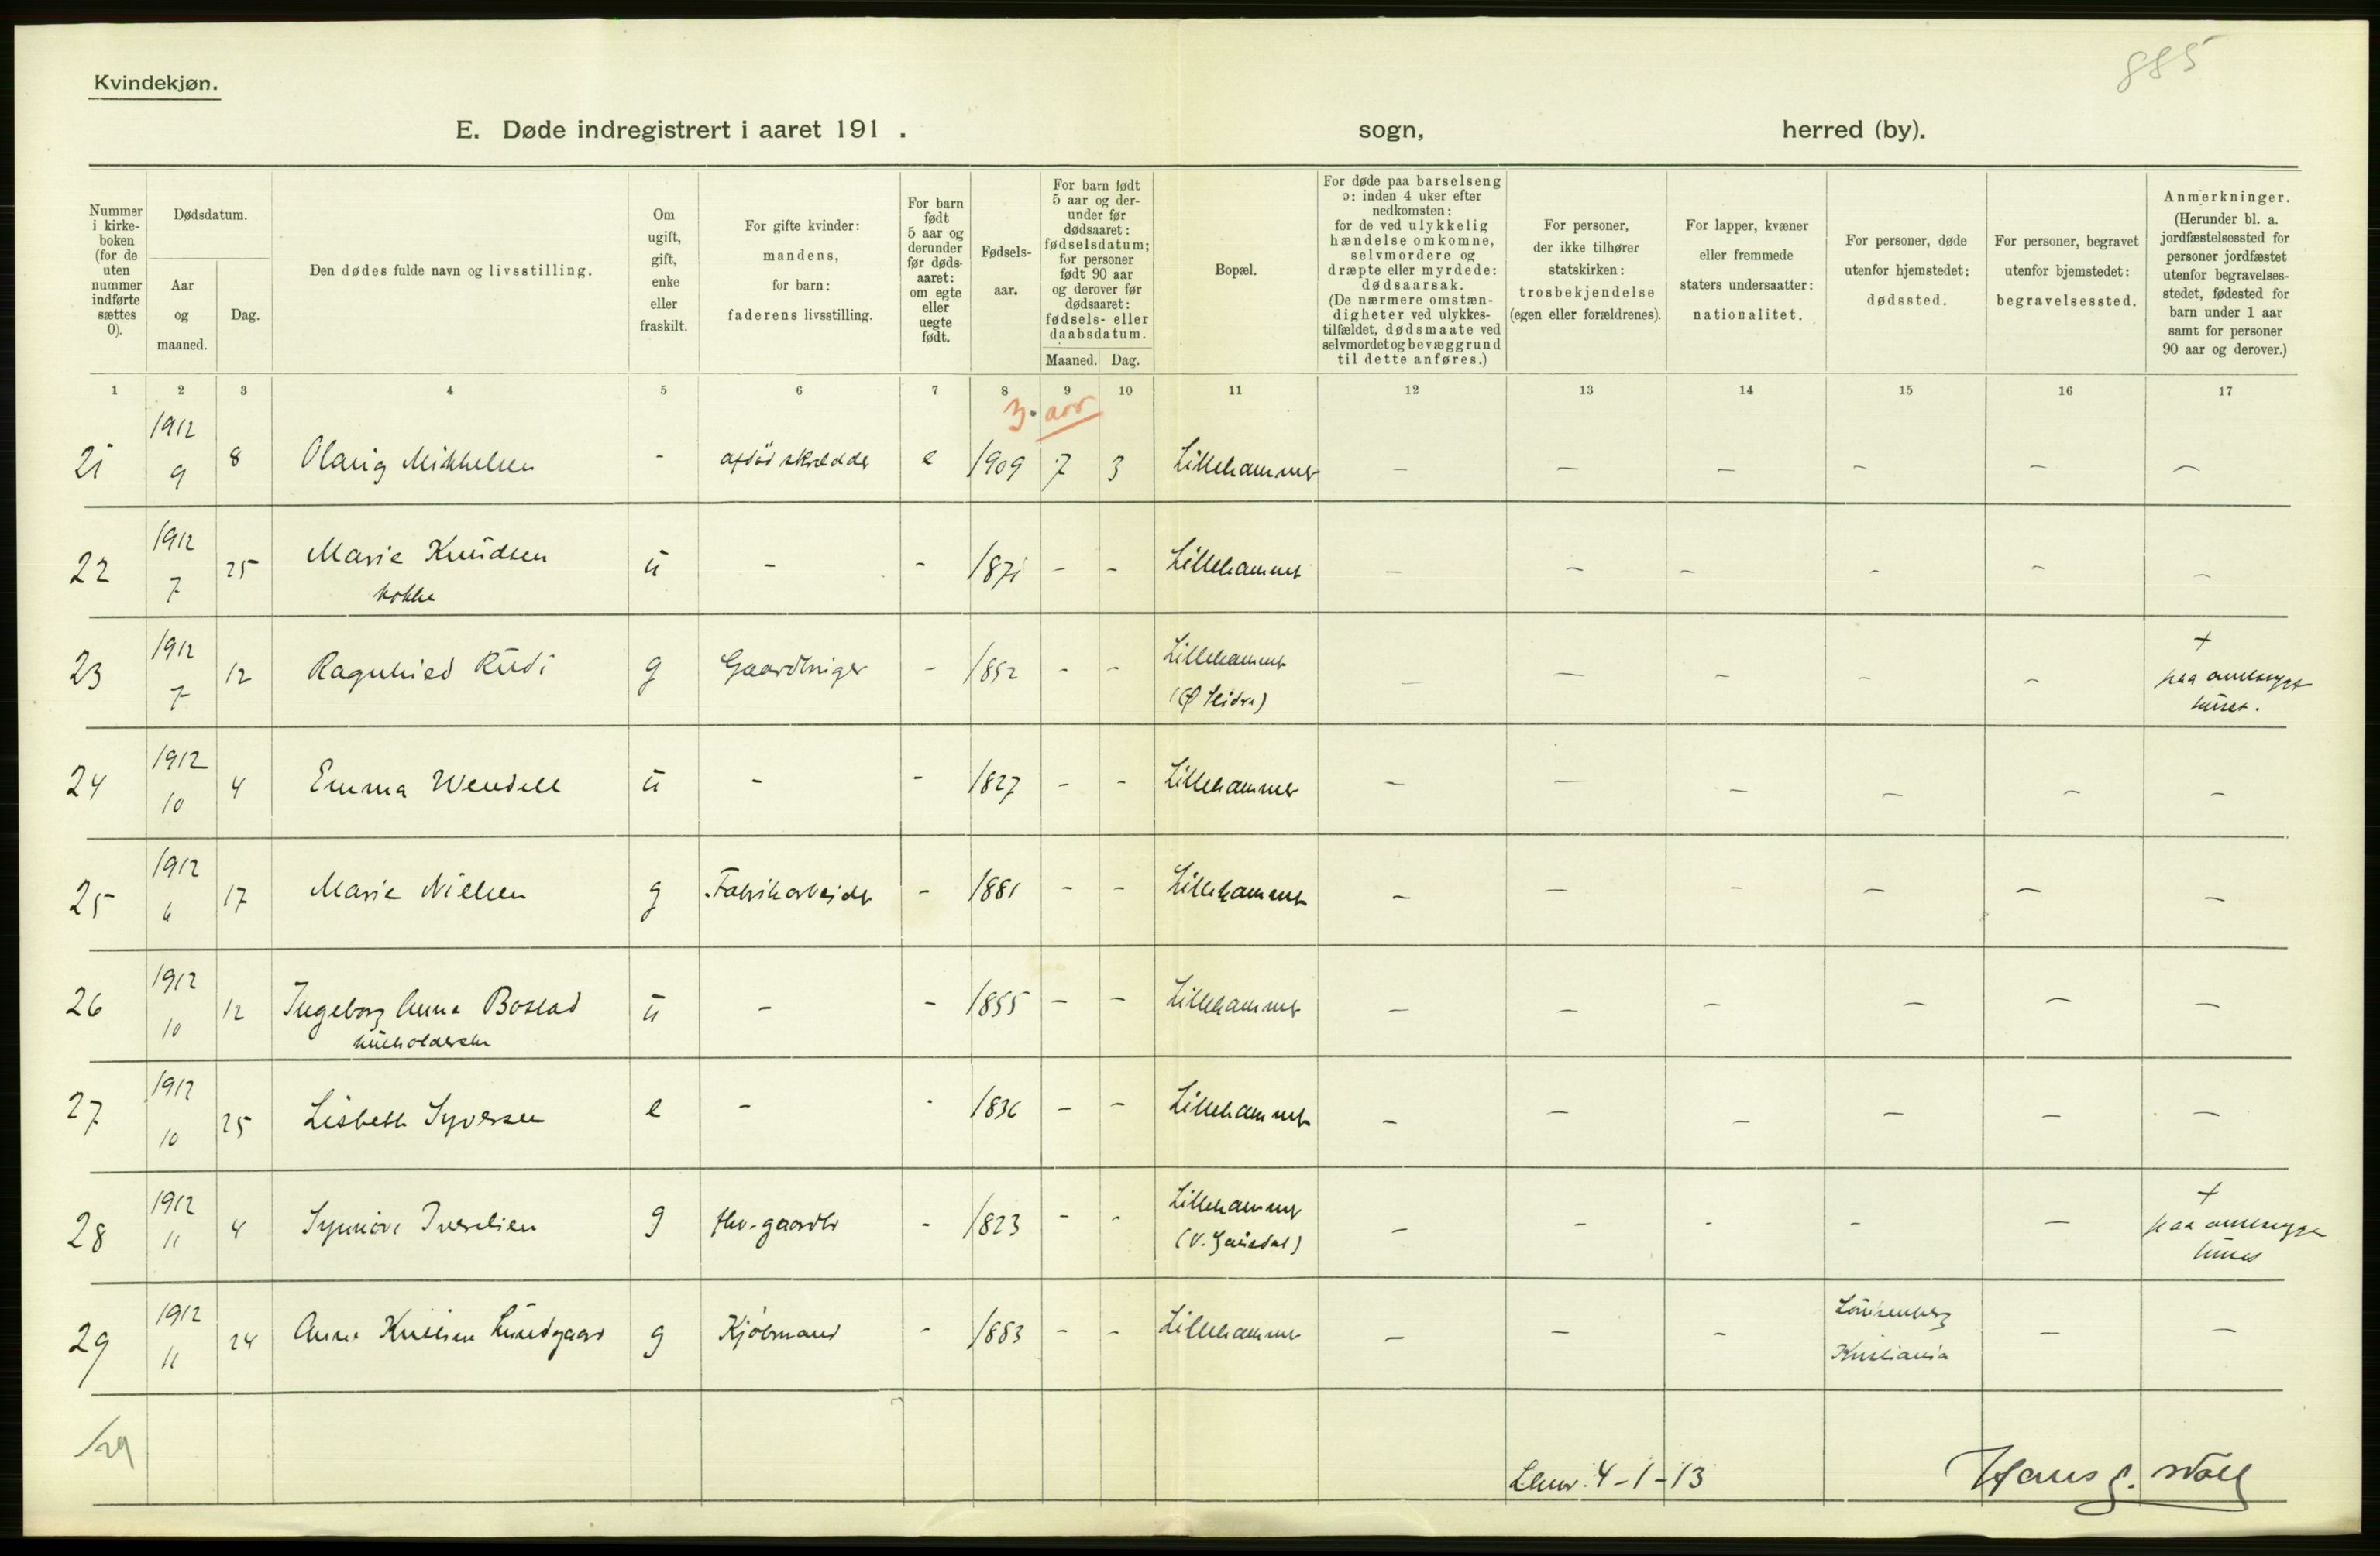 885
Kvindekjøn.
E. Døde indregistrert i aaret 191 . sogn, herred (by).
Nummer i kirke- boken (for de uten nummer indførte sættes 0).
Dødsdatum.
Aar og maaned.
Dag.
Den dødes fulde navn og livsstilling.
Om ugift, gift, enke eller fraskilt.
For gifte kvinder: mandens, for barn: faderens livsstilling.
For barn født 5 aar og derunder før døds- aaret: om egte eller uegte født.
Fødsels- aar.
For barn født 5 aar og der- under før dødsaaret: fødselsdatum; for personer født 90 aar og derover før dødsaaret: fødsels- eller daabsdatum.
Maaned. Dag.
Bopæl.
For døde paa barselseng ɔ: inden 4 uker efter nedkomsten: for de ved ulykkelig hændelse omkomne, selvmordere og dræpte eller myrdede: dødsaarsak. (De nærmere omstæn- digheter ved ulykkes- tilfældet, dødsmaate ved selvmordet og bevæggrund til dette anføres.)
For personer, der ikke tilhører statskirken: trosbekjendelse (egen eller forældrenes).
For lapper, kvæner eller fremmede staters undersaatter: nationalitet.
For personer, døde utenfor hjemstedet: dødssted.
For personer, begravet utenfor bjemstedet: begravelsessted.
Anmerkninger. (Herunder bl. a. jordfæstelsessted for personer jordfæstet utenfor begravelses- stedet, fødested for barn under 1 aar samt for personer 90 aar og derover.)
1 2 3 4 5 6 7 8 9 10 11 12 13 14 15 16 17
3. aar
21 1912 9 8 Olaug Mikkelsen - afdød skrædder e 1909 7 3 Lillehammer — — — — — —
22 1912 7 25 Marie Knudsen ü - - 1871 - - Lillehammer — — — — — —
kokke
23 1912 7 12 Ragnhild Rudi g Gaardbruger - 1852 - - Lillehammer — — — — — +
(Ø Slidre) paa amtssyge
huset.
24 1912 10 4 Emma Wendell ü - - 1827 - - Lillehammer — — — — — —
25 1912 6 17 Marie Nielsen g Fabrikarbeider - 1881 - - Lillehammer — — — — — —
26 1912 10 12 Ingeborg Anna Bostad ü - - 1855 - - Lillehammer — — — — — —
husholderske
27 1912 10 25 Lisbeth Syversen e - - 1836 - - Lillehammer — — — — — —
28 1912 11 4 Synnöve Iverslien g fhv. gaardbr - 1823 - - Lillehammer — — — — — +
(V. Gausdal) paa amtssyge
huset
29 1912 11 24 Anna Kristine Lundgaard g Kjøbmand - 1883 - - Lillehammer — — — Lovisenberg — —
Kristiania
/29
Lhmr. 4-1-13
Hans J.